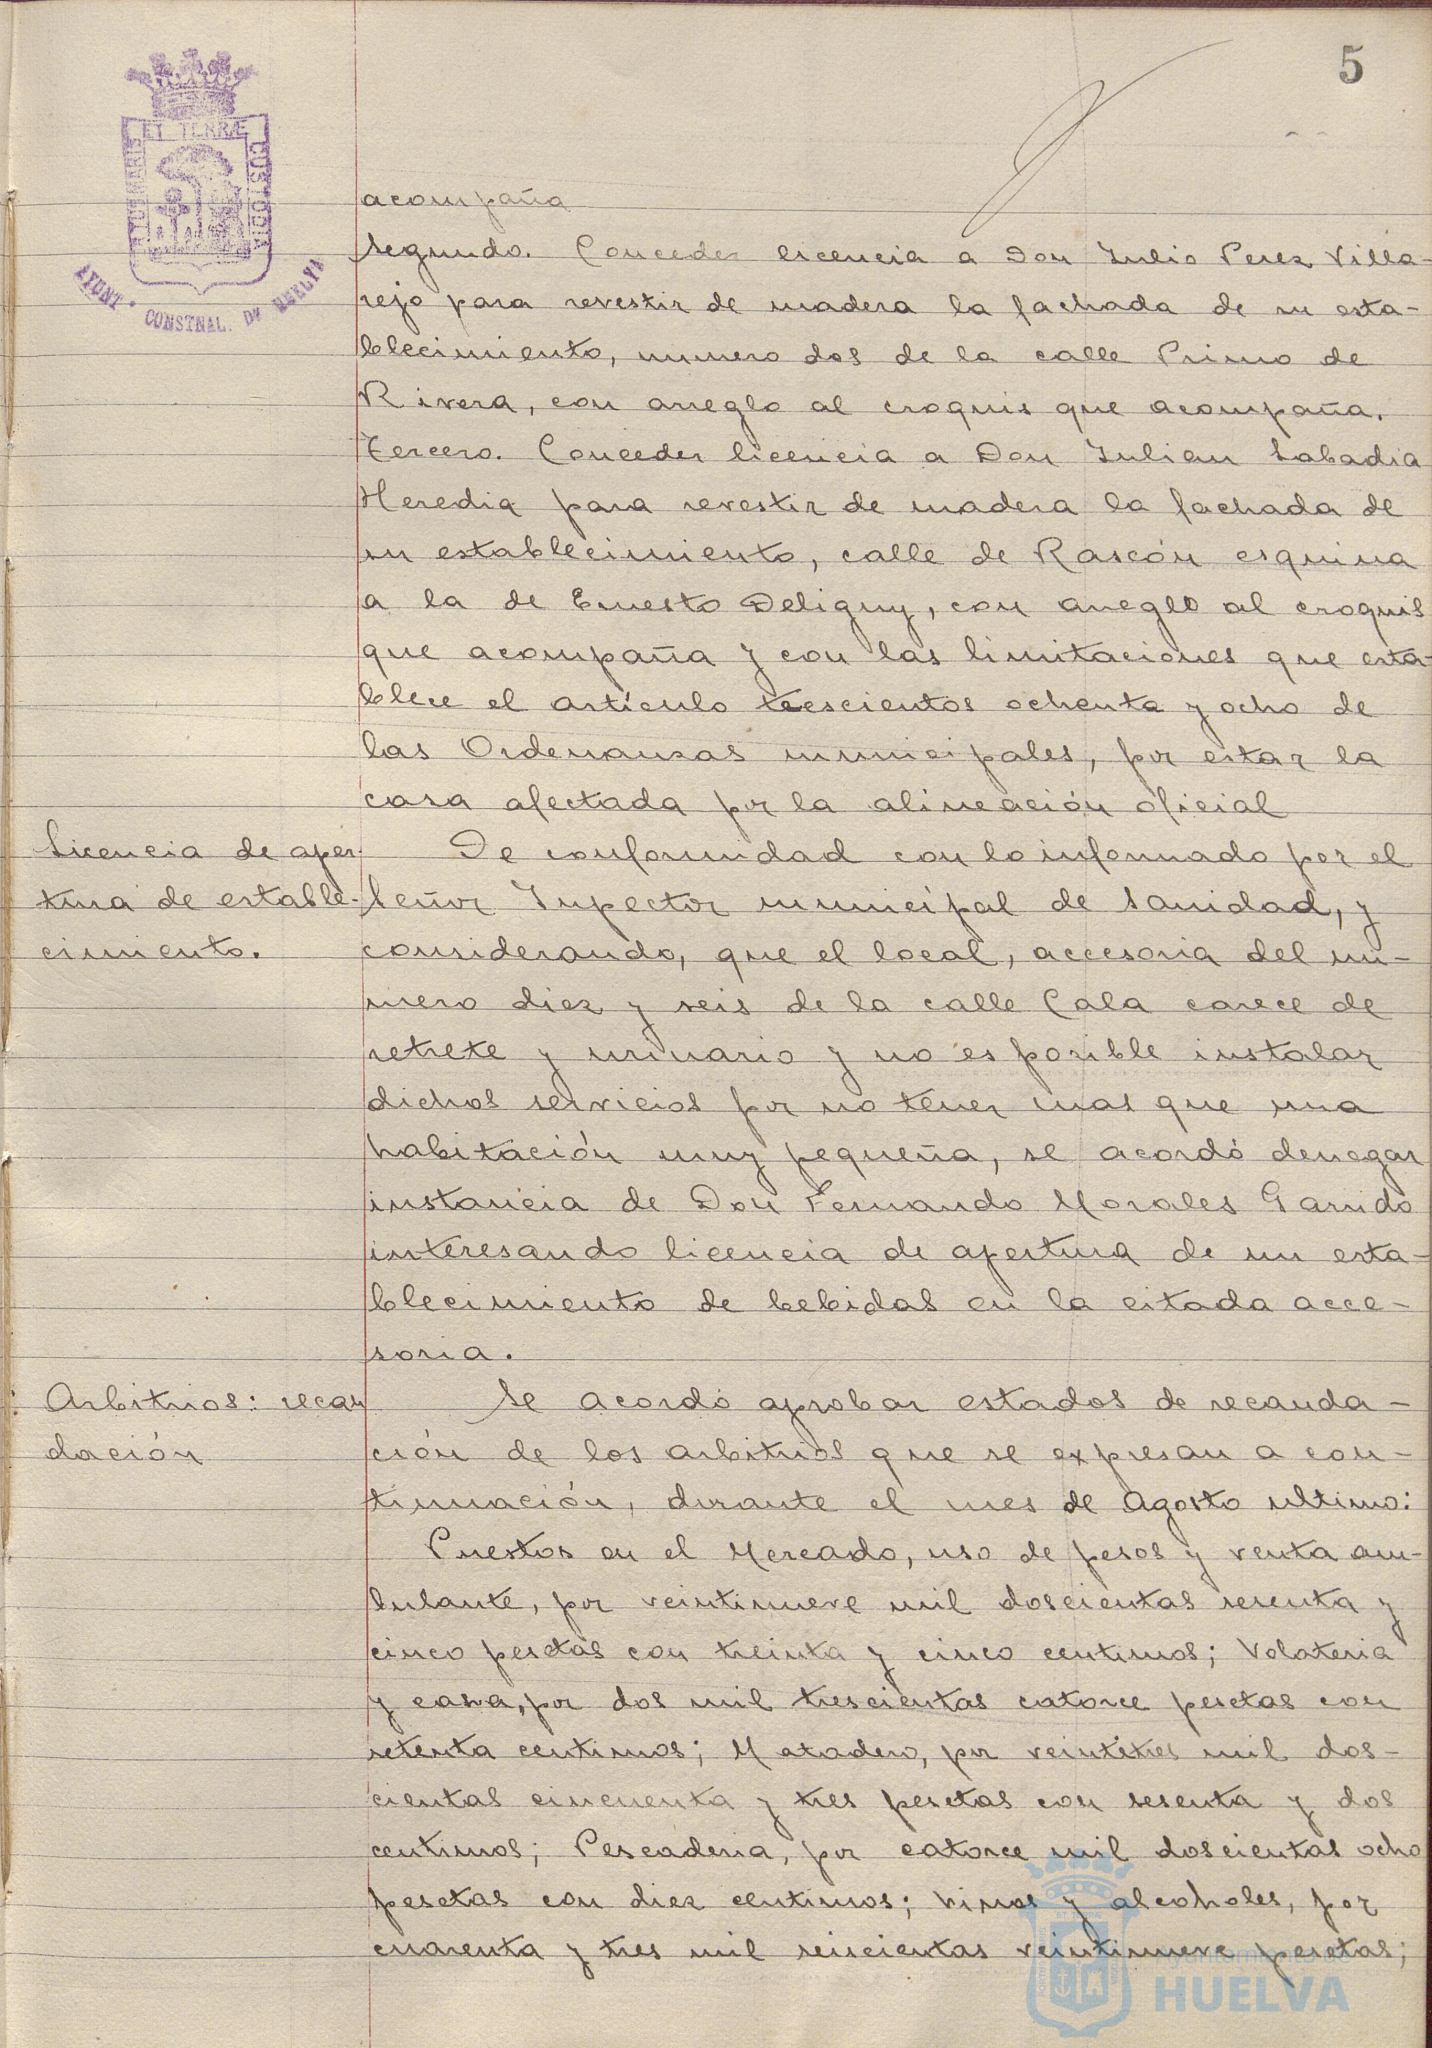 5
ET TERRÆ
PORTUS MARIS
CUSTODIA
AYUNT.º CONSTNAL. DE HUELVA
acompaña
Segundo. Conceder licencia a Don Julio Perez Villa-
rejo para revestir de madera la fachada de su esta-
blecimiento, numero dos de la calle Primo de
Rivera, con arreglo al croquis que acompaña.
Tercero. Conceder licencia a Don Julian Labadia
Heredia para revestir de madera la fachada de
su establecimiento, calle de Rascón esquina
a la de Ernesto Deligny, con arreglo al croquis
que acompaña y con las limitaciones que esta-
blece el artículo trescientos ochenta y ocho de
las Ordenanzas municipales, por estar la
casa afectada por la alineación oficial
Licencia de aper-
tura de estable-
cimiento.
De conformidad con lo informado por el
Señor Inpector municipal de Sanidad, y
considerando, que el local, accesoria del nu-
mero diez y seis de la calle Cala carece de
retrete y urinario y no es posible instalar
dichos servicios por no tener mas que una
habitación muy pequeña, se acordó denegar
instancia de Don Fernando Morales Garrido
interesando licencia de apertura de un esta-
blecimiento de bebidas en la citada acce-
soria.
Arbitrios: recau
dación
Se acordó aprobar estados de recauda-
ción de los arbitrios que se expresan a con-
tinuación, durante el mes de Agosto ultimo:
Puestos en el Mercado, uso de pesos y venta am-
bulante, por veintinueve mil doscientas sesenta y
cinco pesetas con treinta y cinco centimos; Volateria
y caza, por dos mil trescientas catorce pesetas con
setenta centimos; Matadero, por veintitres mil dos-
cientas cincuenta y tres pesetas con sesenta y dos
centimos; Pescaderia, por catorce mil doscientas ocho
pesetas con diez centimos; Vinos y alcoholes, por
cuarenta y tres mil seiscientas veintinueve pesetas;
Ayuntamiento de
HUELVA